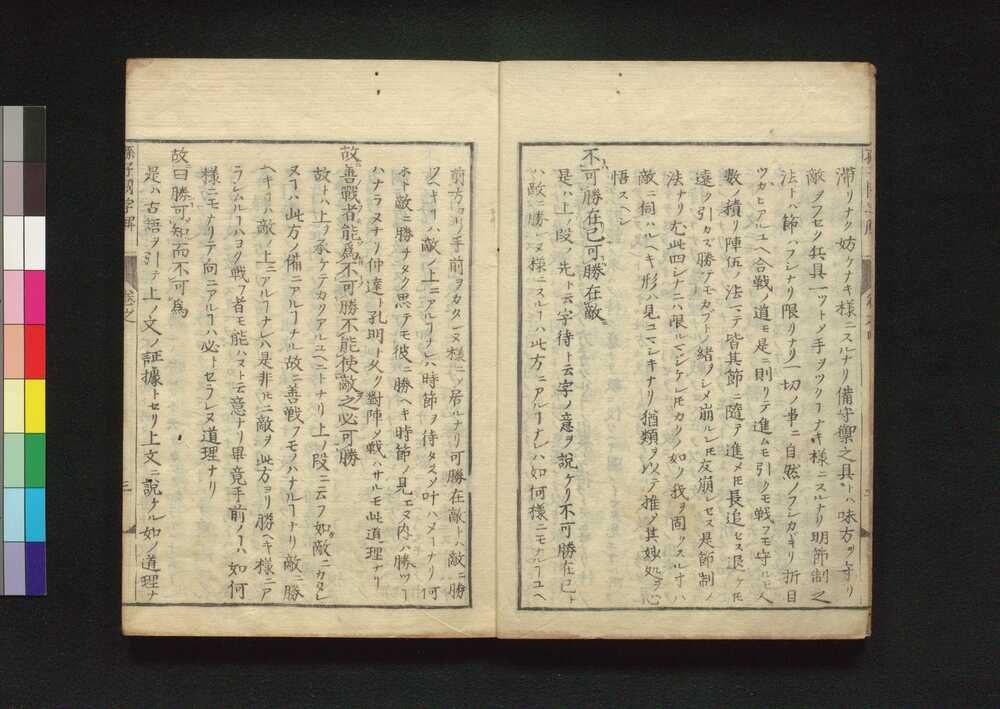 滞リナク妨ケナキ様ニスルナリ備守禦之具トハ味方ヲ守リ
敵ヲフセク兵具一ツトメ手ヲツクヿナキ様ニスルナリ明節制之
法トハ節ハフシナリ限リナリ一切ノ事ニ自然ノフシカギリ折目
ツカヒアルユヘ合戦ノ道モ是ニ則リテ進ムモ引クモ戦フモ守ルモ人
数ノ積リ陣伍ノ法ニテ皆其節ニ隨テ進メ𪜈長追セス退ケ𪜈
遠ク引カズ勝テモカブトノ緒ヲシメ崩ルレ𪜈友崩レセス是節制ノ
法ナリ此四シナニ限ルマシケレ𪜈カクノ如ク我ヲ固クスル寸ハ
敵ニ伺ハルヘキ形ハ見ユマシキナリ猶類ヲ以テ推ゾ其妙処ヲ心
悟スヘシ
不可勝在己可勝在敵
是ハ上ノ段ノ先ト云字待ト云字ノ意ヲ説ケリ不可勝在己ト
ハ敵ニ勝レヌ様ニスルヿハ此方ニアルヿナレハ如何様ニモナルヿユヘ
前方ヨリ手前ヲカタメヌ様ニメ居ルナリ可勝在敵トハ敵ニ勝
ツヘキヿハ敵ノ上ニアルヿナレハ時節ヲ待タスメ叶ハメヿナリ何
ホト敵ニ勝チタク思テモ彼ニ勝ヘキ時節ノ見エヌ内ハ勝ツヿ
ハナラヌナリ仲達ト孔明ト久ク對陣メ戦ハサルモ此道理ナリ
故善戰者能為不可勝不能使敵之必可勝
故トハ上ヲ承ケテカクアルユヘニトナリ上ノ段ニ云フ如ク敵ニカタレ
ヌヿハ此方ノ備ニアルヿナル故ニ善戦フモノハナルヿナリ敵ニ勝
ヘキヿハ敵ノ上ニアルヿナレハ是非𪜈ニ敵ヲ此方ヨリ勝ヘキ様ニア
ラシムルヿハヨク戦フ者モ能ハヌト云意ナリ畢竟手前ノヿハ如何
様ニモナリテ向ニアルヿハ必トセラレヌ道理ナリ
故曰勝可知而不可為
是ハ古語ヲ引テ上ノ文ノ証據トセリ上文ニ説ケル如ノ道理ナ
孫子國字解
卷之
三